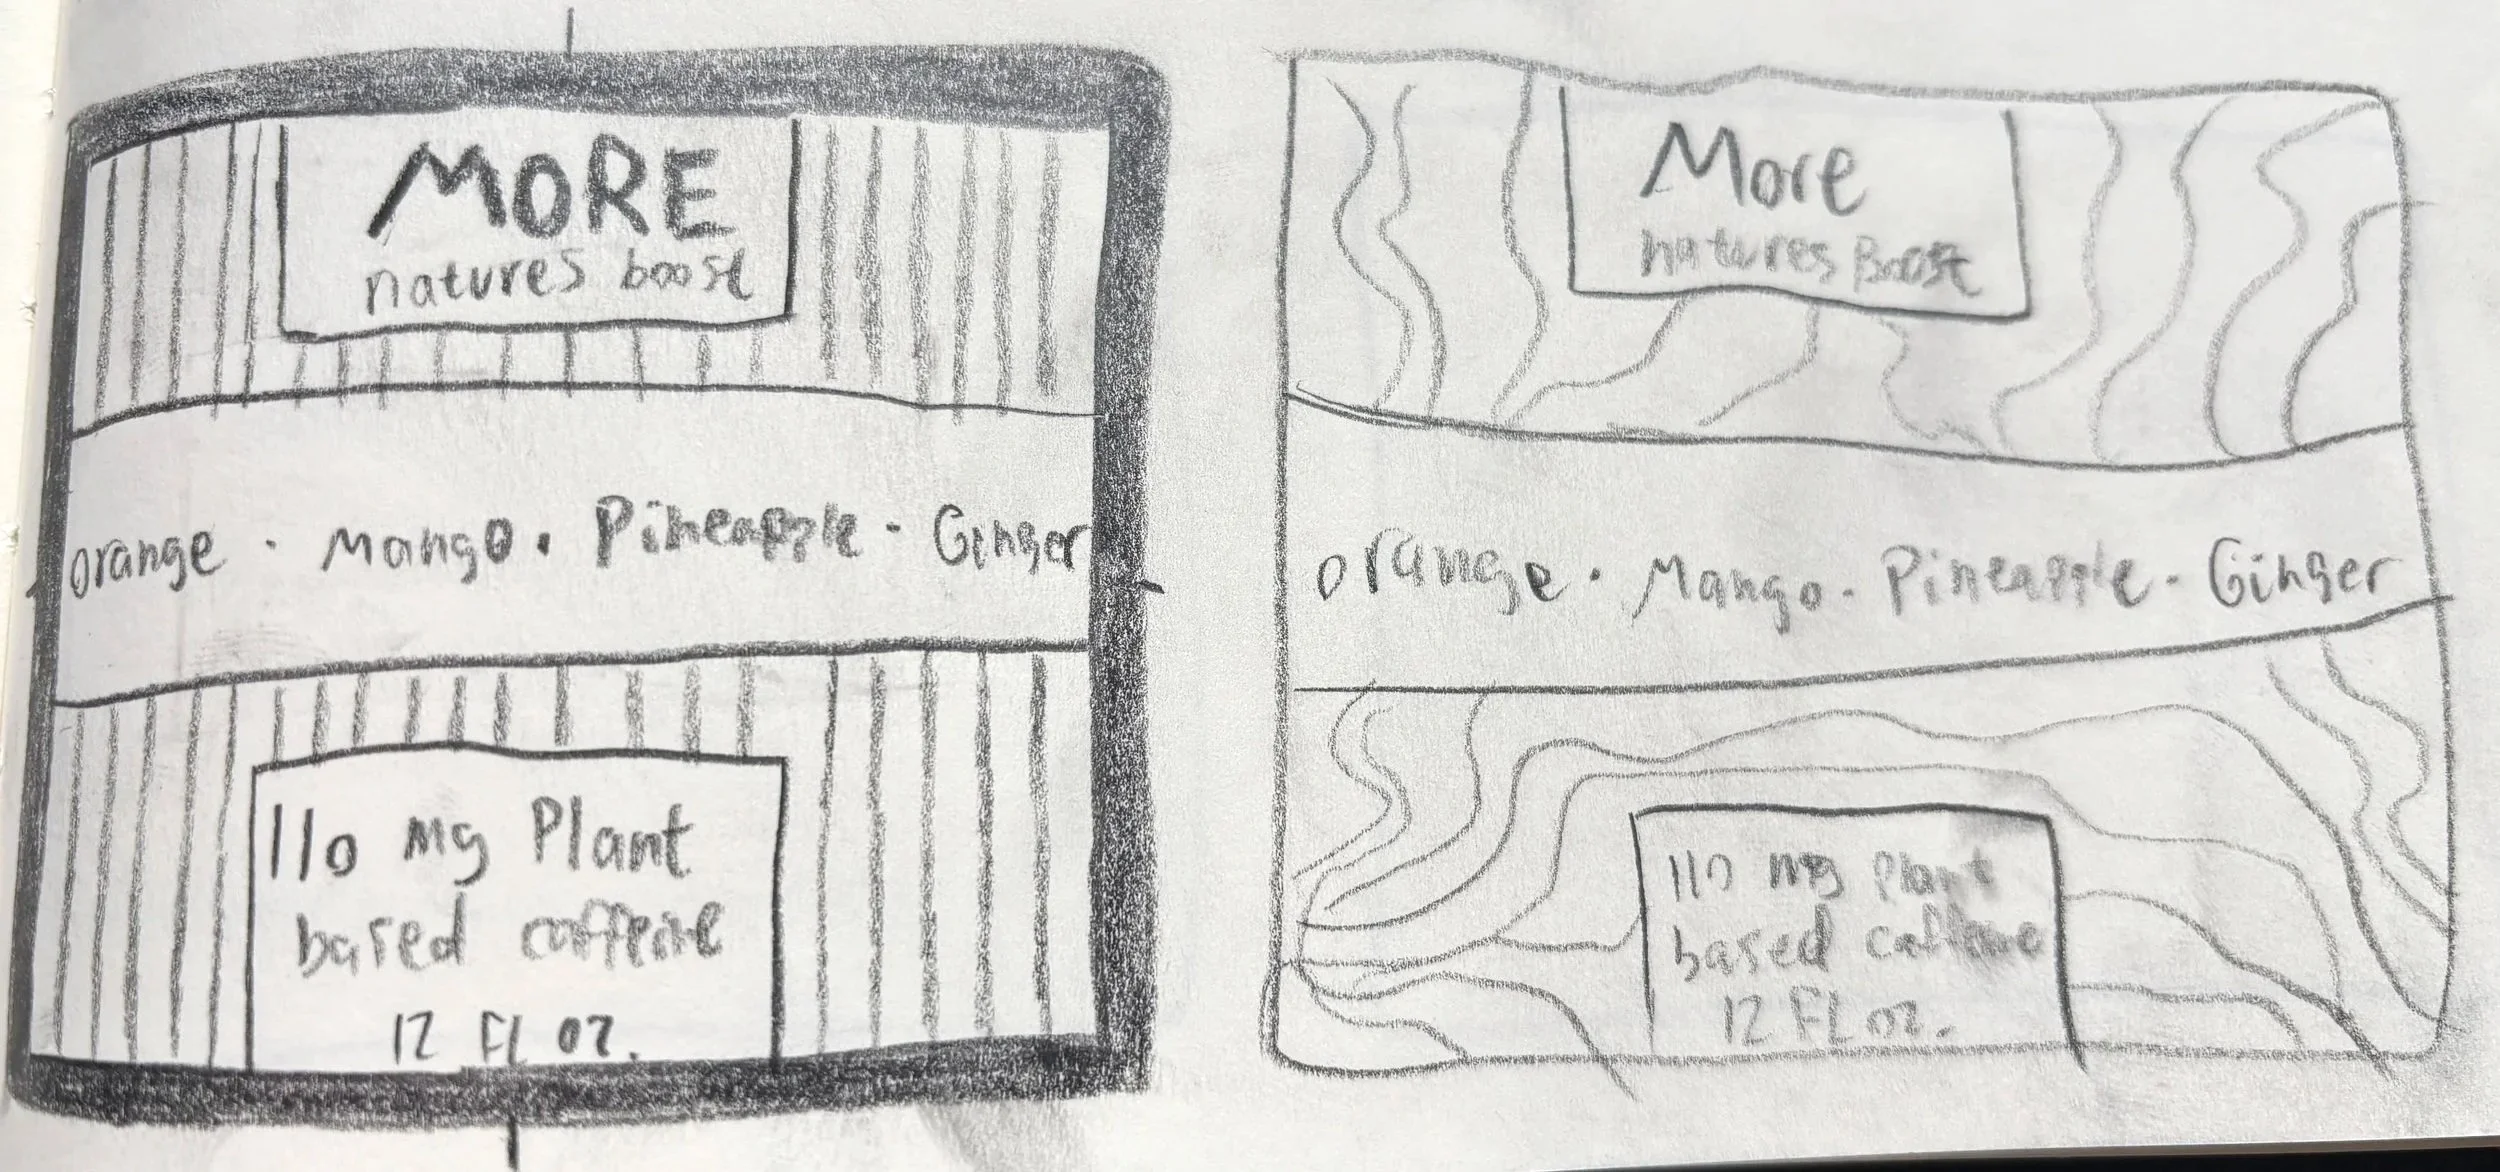 MORE
natures boost
orange · Mango · Pineapple - Ginger
110 mg Plant
based caffeine
12 FL oz.
More
natures Boost
orange · Mango · Pineapple · Ginger
110 mg Plant
based caffeine
12 FL oz.